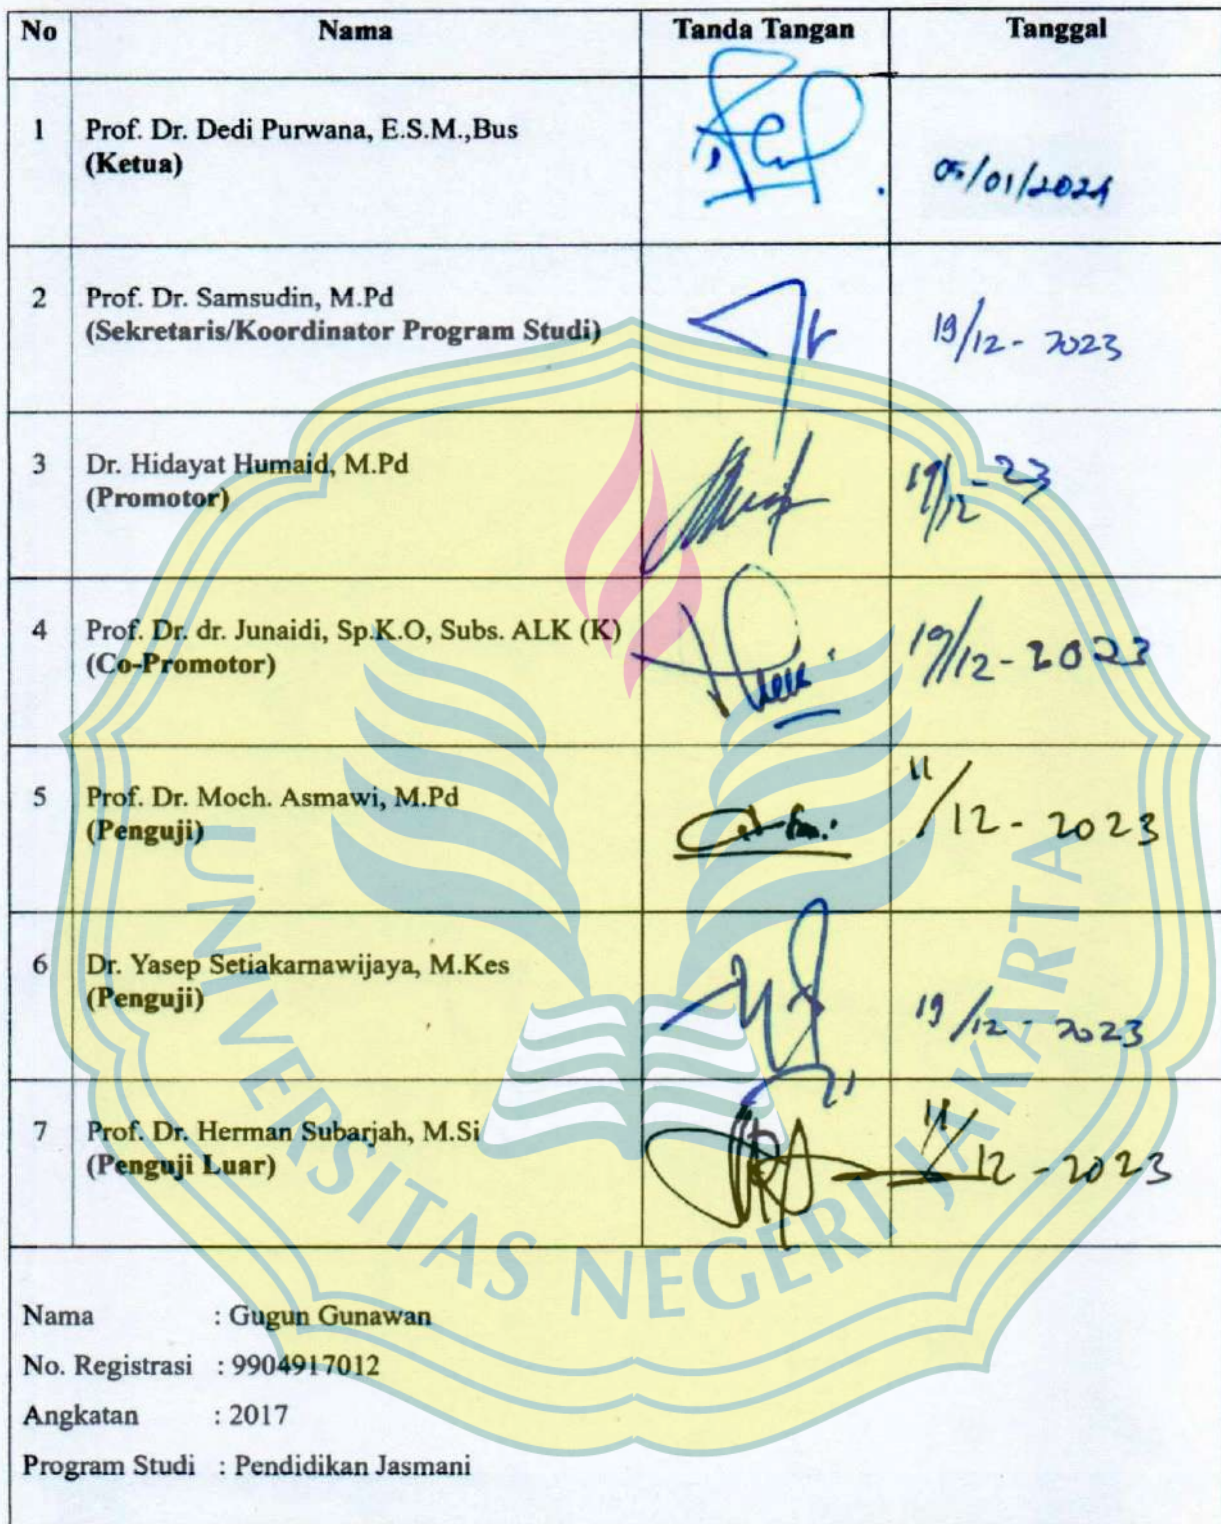 No Nama Tanda Tangan Tanggal
1 Prof. Dr. Dedi Purwana, E.S.M.,Bus
(Ketua)
05/01/2024
2 Prof. Dr. Samsudin, M.Pd
(Sekretaris/Koordinator Program Studi)
19/12 - 2023
3 Dr. Hidayat Humaid, M.Pd
(Promotor)
19/12 - 23
4 Prof. Dr. dr. Junaidi, Sp.K.O, Subs. ALK (K)
(Co-Promotor)
19/12 - 2023
5 Prof. Dr. Moch. Asmawi, M.Pd
(Penguji)
11/12 - 2023
6 Dr. Yasep Setiakarnawijaya, M.Kes
(Penguji)
19/12 - 2023
7 Prof. Dr. Herman Subarjah, M.Si
(Penguji Luar)
11/12 - 2023
UNIVERSITAS NEGERI JAKARTA
Nama : Gugun Gunawan
No. Registrasi : 9904917012
Angkatan : 2017
Program Studi : Pendidikan Jasmani